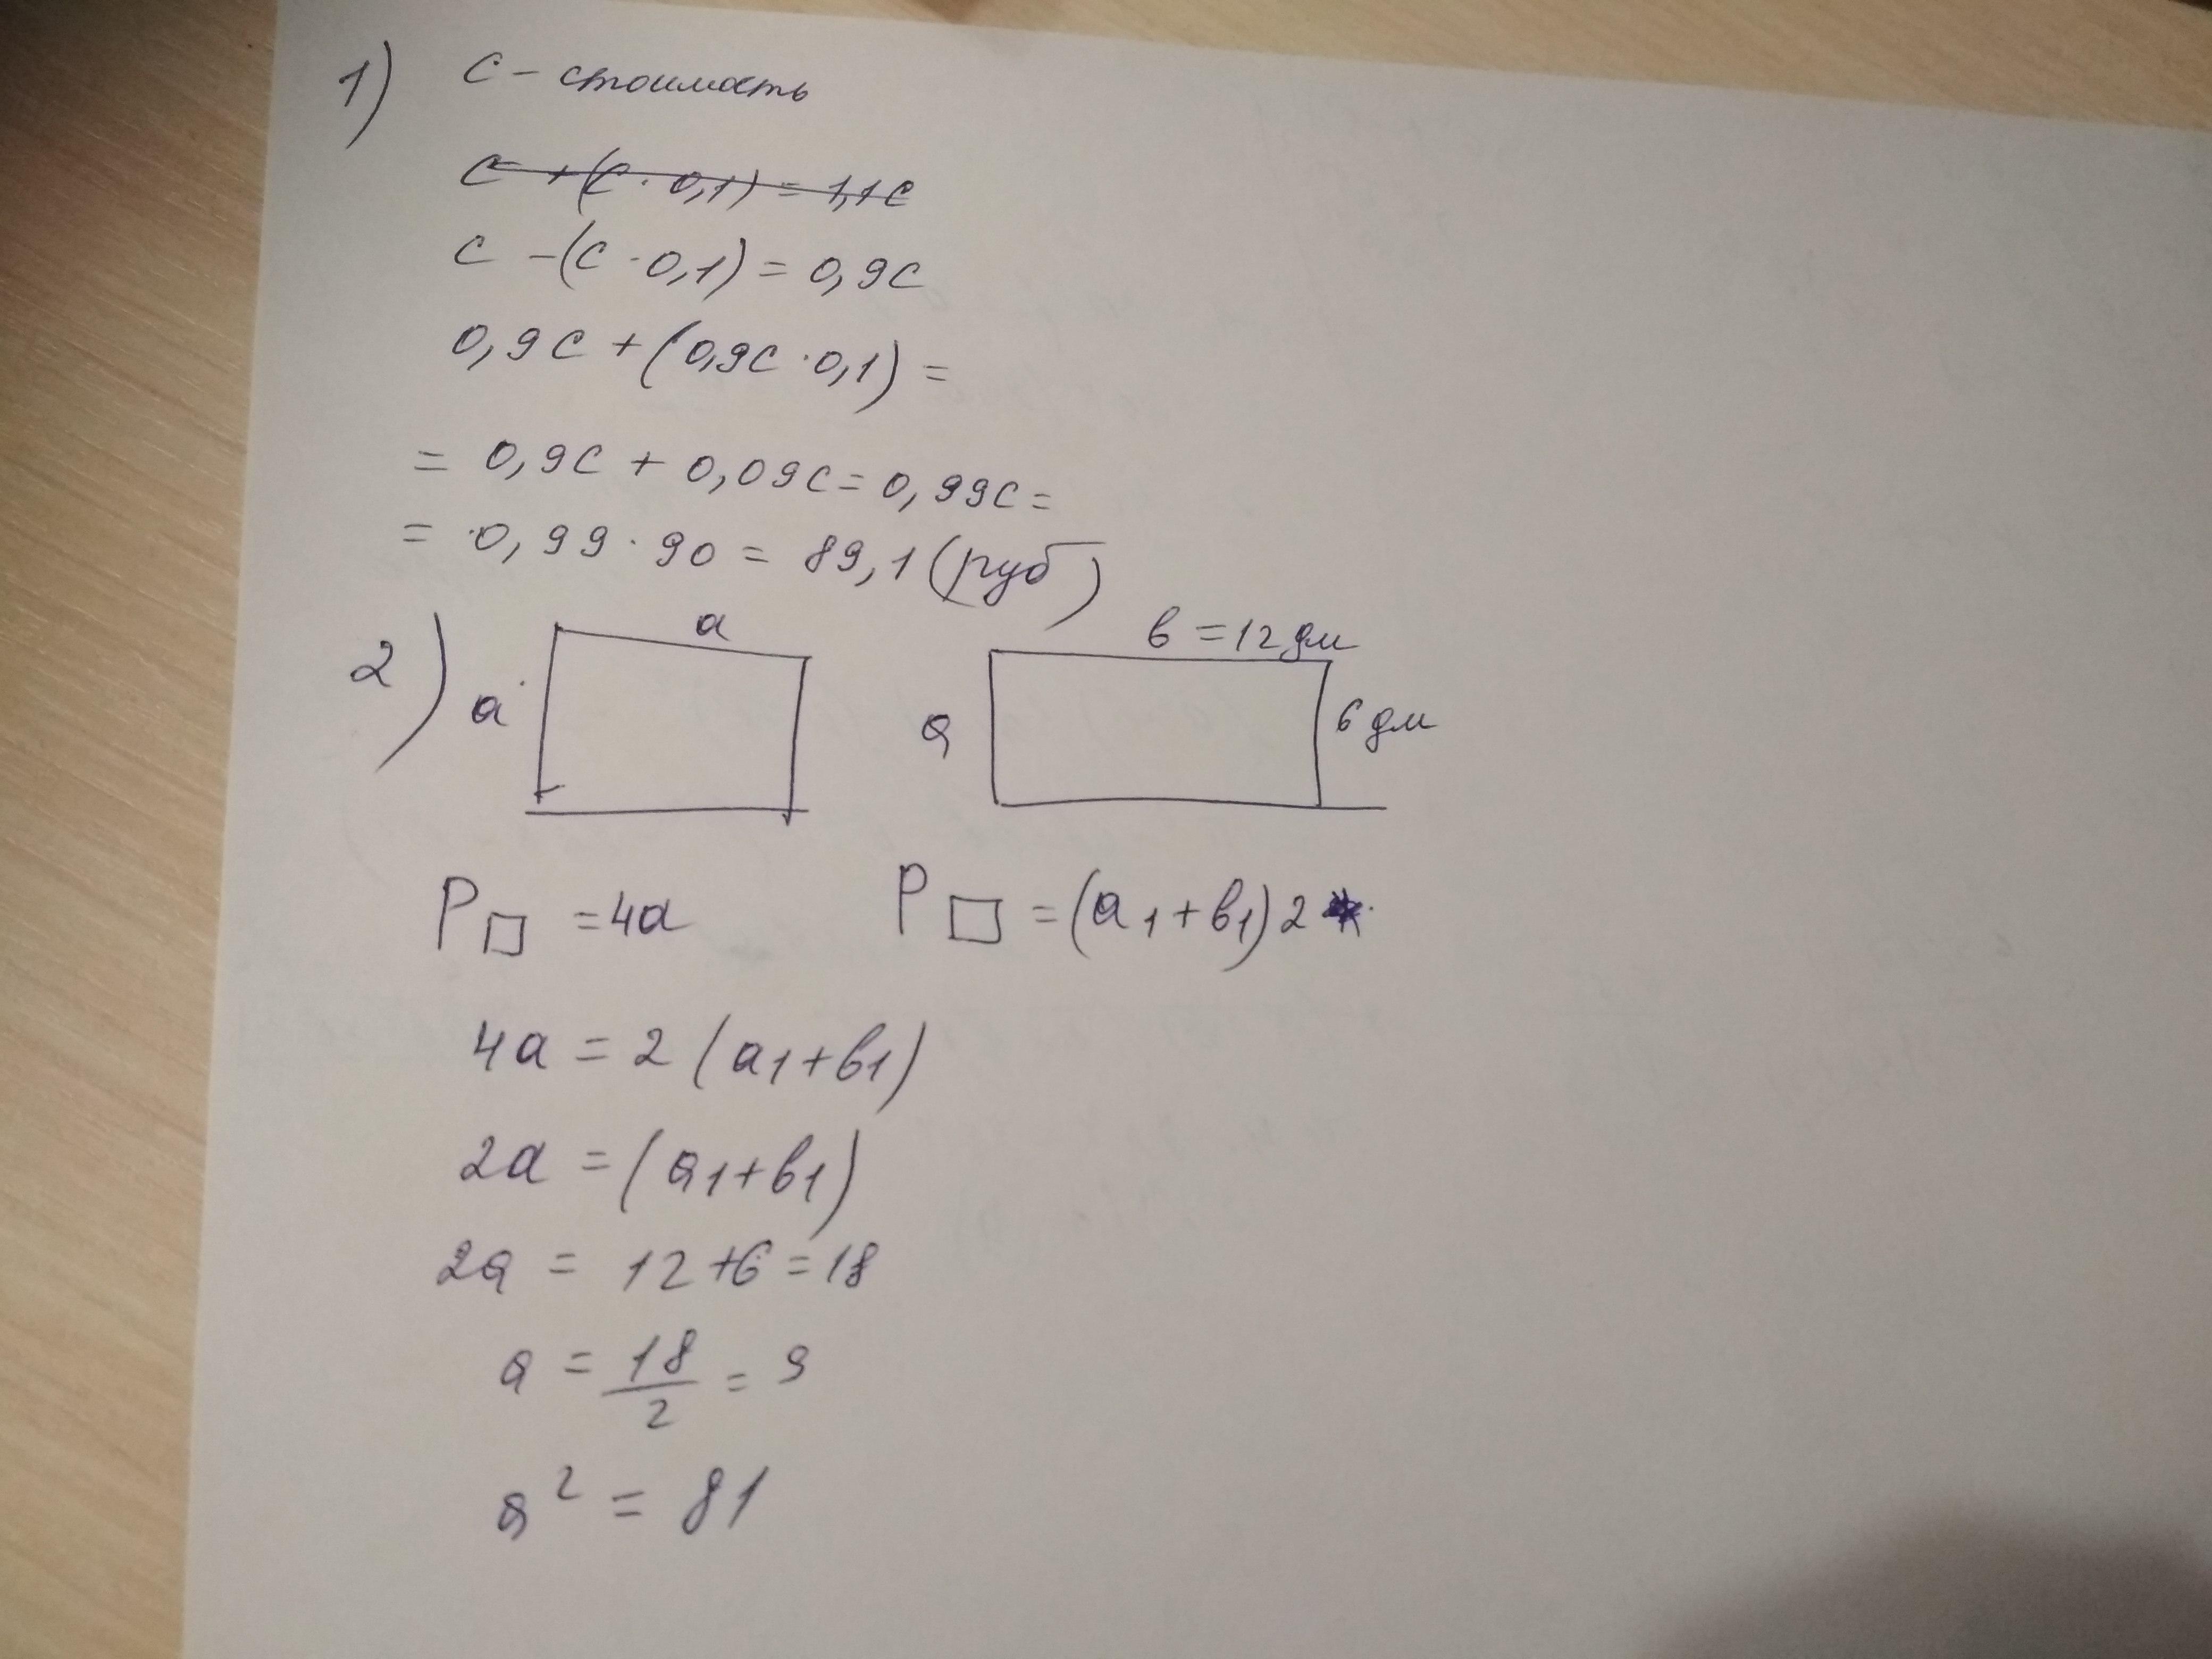 1) C - стоимость
C + (C · 0,1) = 1,1C
C - (C · 0,1) = 0,9C
0,9C + (0,9C · 0,1) =
= 0,9C + 0,09C = 0,99C =
= 0,99 · 90 = 89,1 (руб)
2) a
a
в = 12 дм
a
6 дм
P□ = 4a
P□ = (a1 + в1) 2
4a = 2 (a1 + в1)
2a = (a1 + в1)
2a = 12 + 6 = 18
a = 18/2 = 9
a² = 81